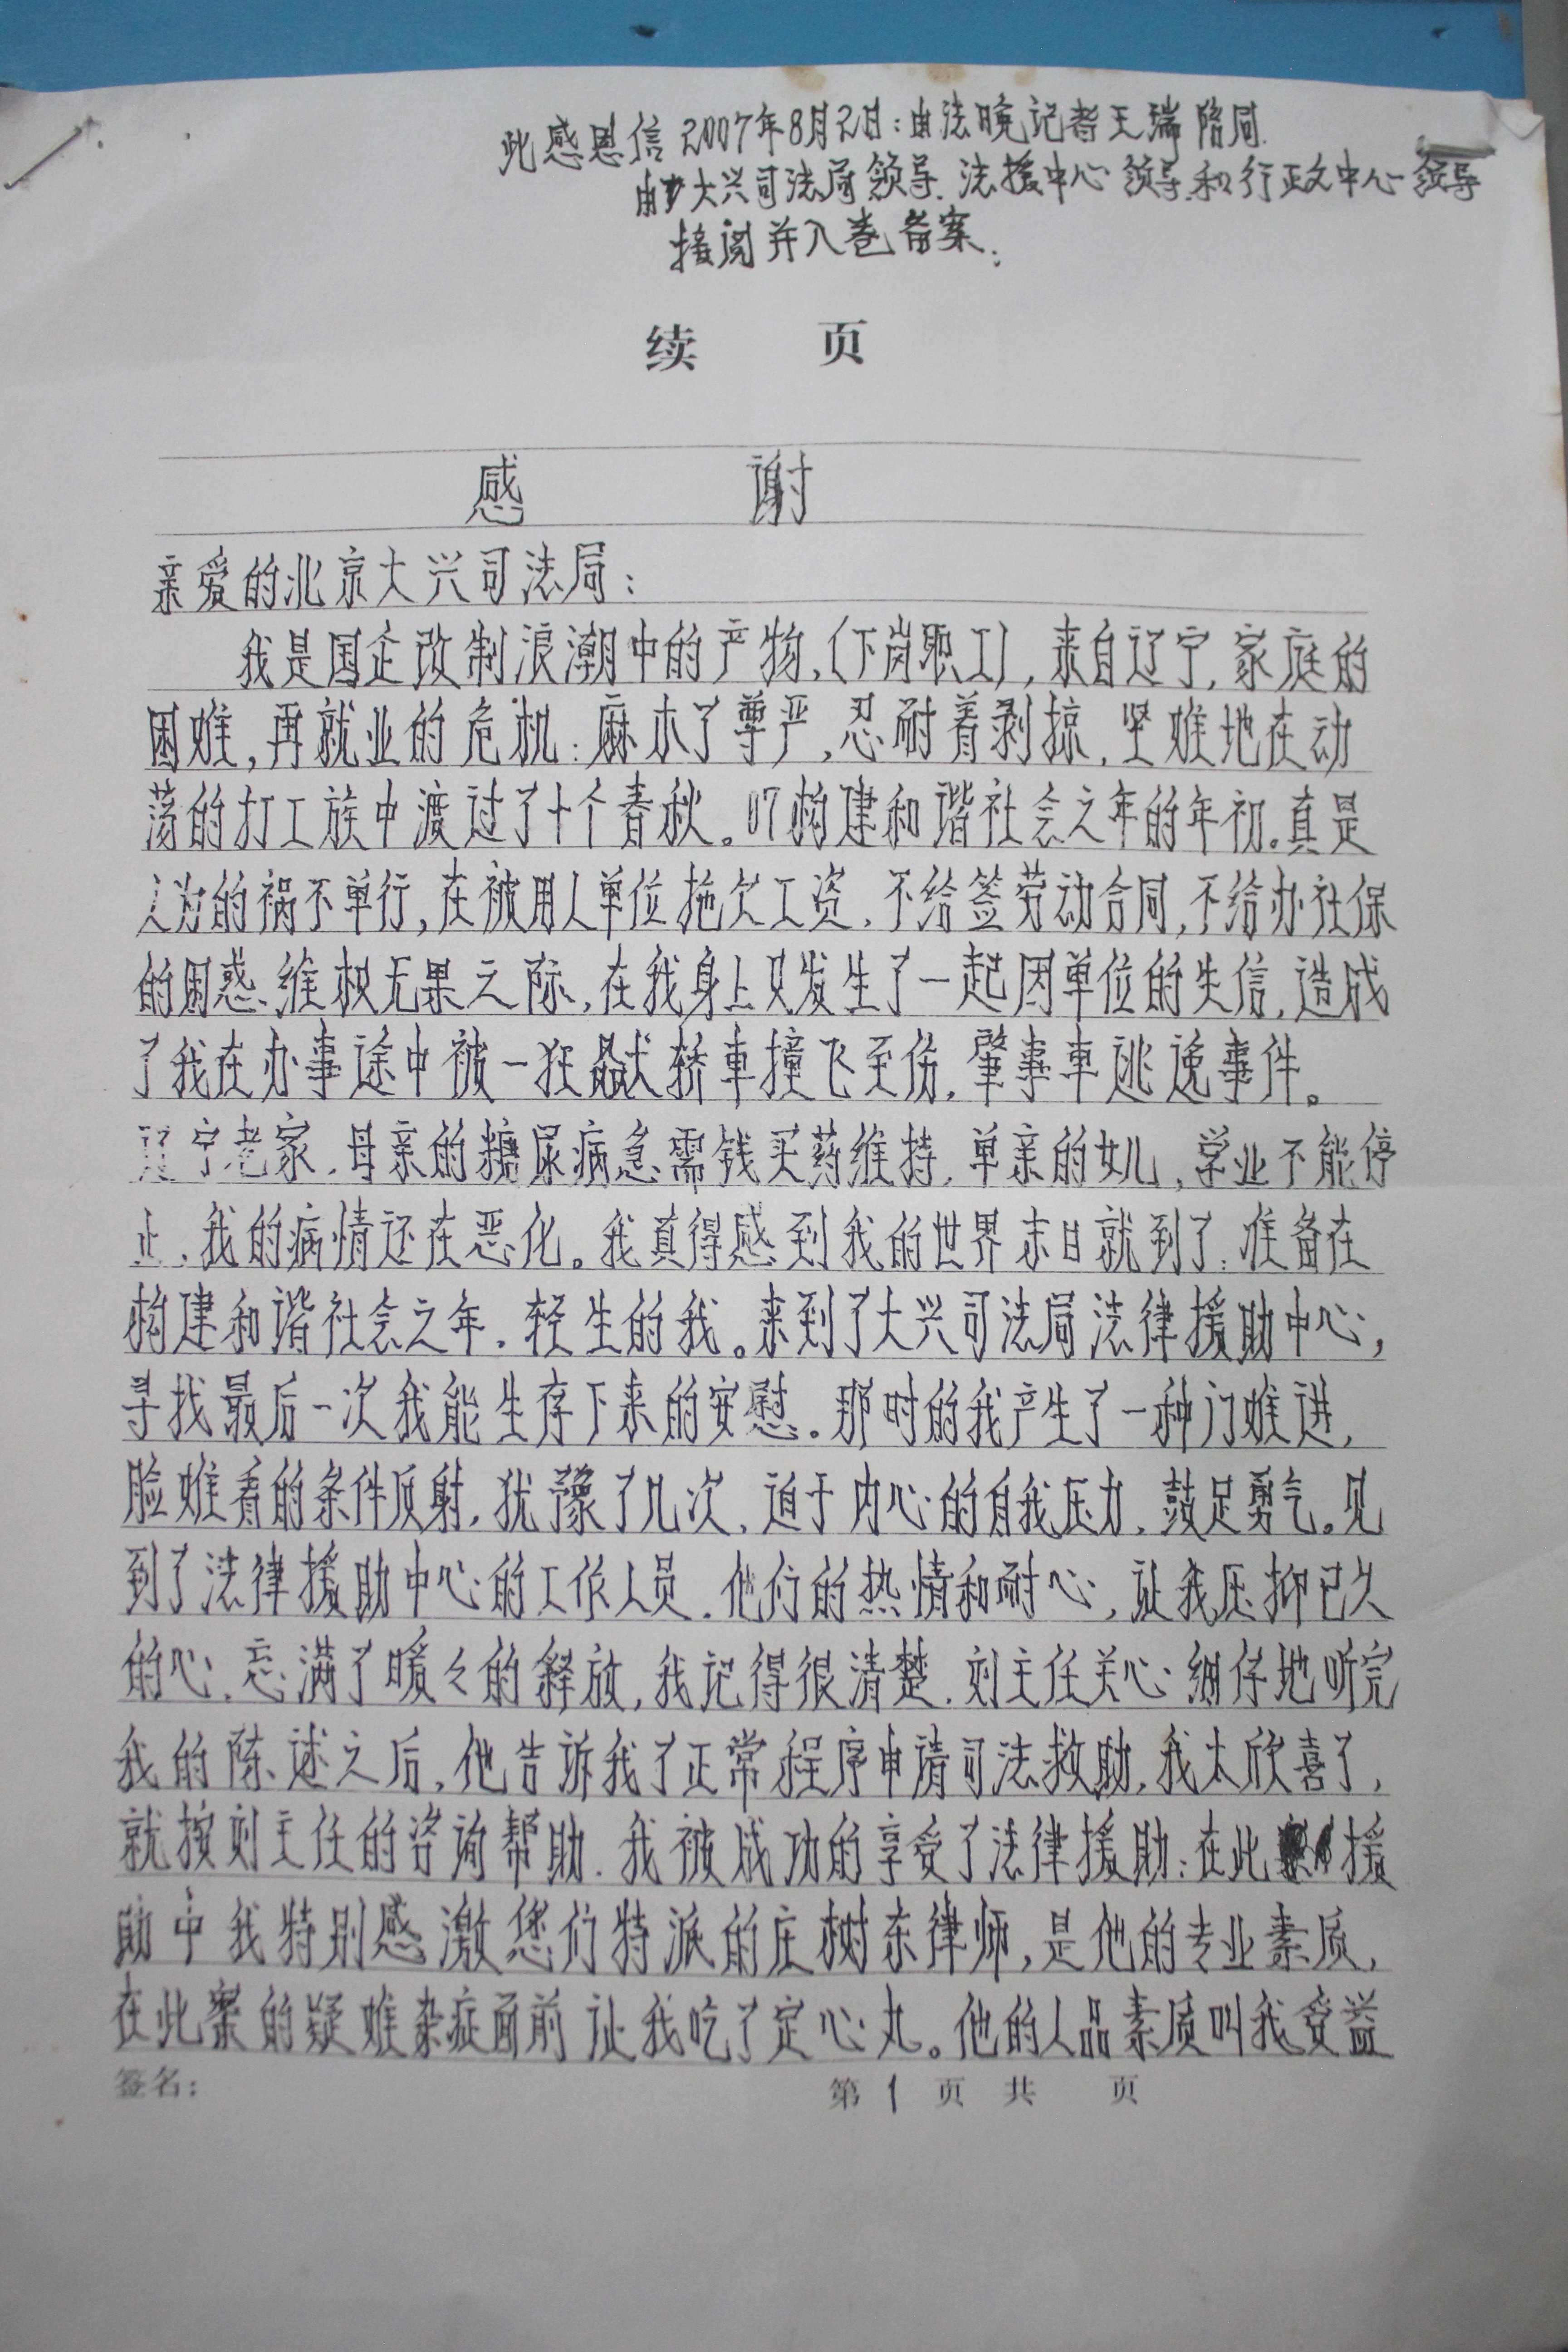 此感恩信2007年8月2日:由法晚记者王瑞陪同.
由大兴司法局领导.法援中心领导和行政中心领导
接阅并入卷备案.
续 页
感 谢
亲爱的北京大兴司法局:
我是国企改制浪潮中的产物,(下岗职工),来自辽宁,家庭的
困难,再就业的危机:麻木了尊严,忍耐着剥掠,坚难地在动
荡的打工族中渡过了十个春秋。07构建和谐社会之年的年初。真是
人为的祸不单行,在被用人单位拖欠工资,不给签劳动合同,不给办社保
的困惑、维权无果之际,在我身上又发生了一起因单位的失信,造成
了我在办事途中被一狂飙轿車撞飞至伤,肇事車逃逸事件。
辽宁老家,母亲的糖尿病急需钱买药维持,单亲的女儿,学业不能停
止,我的病情还在恶化。我真得感到我的世界末日就到了:准备在
构建和谐社会之年,轻生的我。来到了大兴司法局法律援助中心,
寻找最后一次我能生存下来的安慰。那时的我产生了一种门难进,
脸难看的条件反射,犹豫了几次,迫于内心的自我压力,鼓足勇气。见
到了法律援助中心的工作人员,他们的热情和耐心,让我压抑已久
的心,忘满了暖々的释放,我记得很清楚,刘主任关心细仔地听完
我的陈述之后,他告诉我了正常程序申请司法救助,我太欣喜了,
就按刘主任的咨询帮助,我被成功的享受了法律援助:在此援
助中我特别感激您们特派的庄树东律师,是他的专业素质,
在此案的疑难杂症面前让我吃了定心丸。他的人品素质叫我受益
签名: 第 1 页 共 页